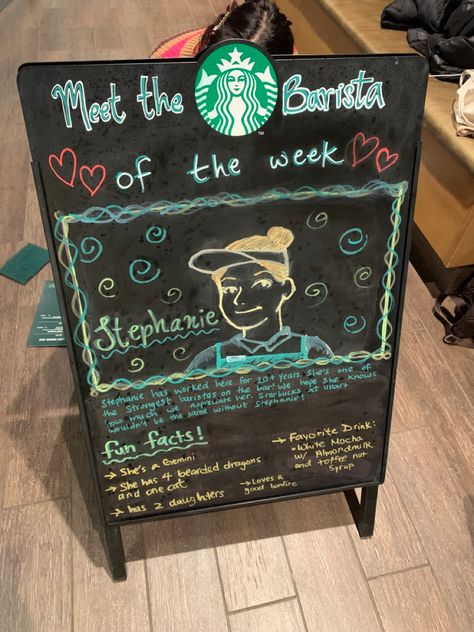 Meet the Barista
of the week
Stephanie
Stephanie has worked here for 20+ years. She's one of
the strongest baristas on the bar! We hope she knows
how much we appreciate her. Starbucks at Ukart
wouldn't be the same without Stephanie!
fun facts!
→ She's a Gemini
→ She has 4 bearded dragons
and one cat
→ has 2 daughters
→ Loves a
good bonfire
→ Favorite Drink:
• White Mocha
w/ Almondmilk
and toffee nut
Syrup